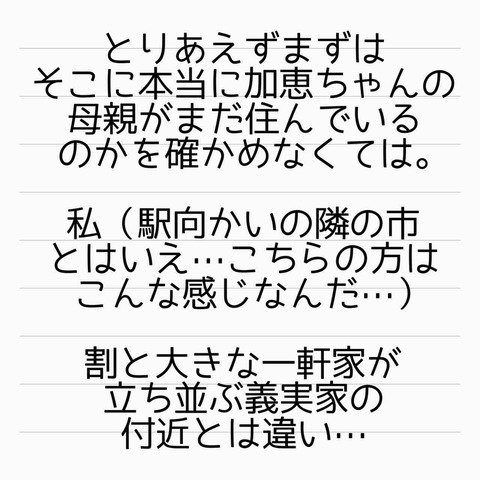 とりあえずまずは
そこに本当に加恵ちゃんの
母親がまだ住んでいる
のかを確かめなくては。
私（駅向かいの隣の市
とはいえ…こちらの方は
こんな感じなんだ…）
割と大きな一軒家が
立ち並ぶ義実家の
付近とは違い…